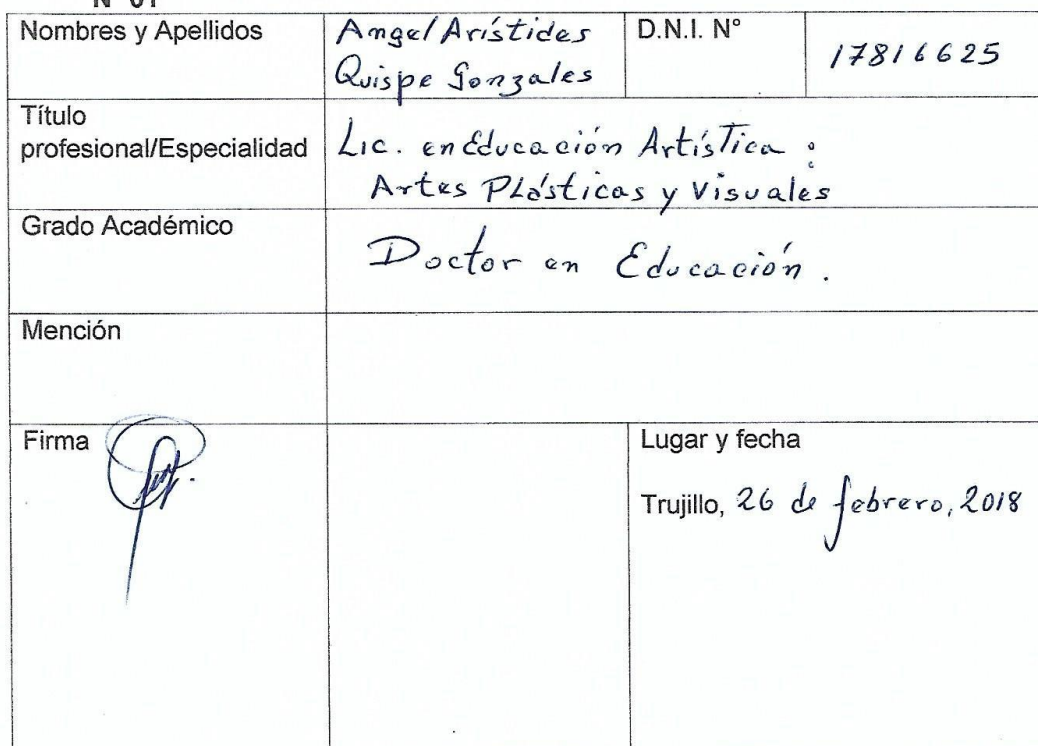 N° 01
Nombres y Apellidos
Angel Arístides
Quispe Gonzales
D.N.I. N°
17816625
Título
profesional/Especialidad
Lic. en Educación Artística :
Artes Plásticas y Visuales
Grado Académico
Doctor en Educación.
Mención
Firma
Lugar y fecha
Trujillo, 26 de febrero, 2018